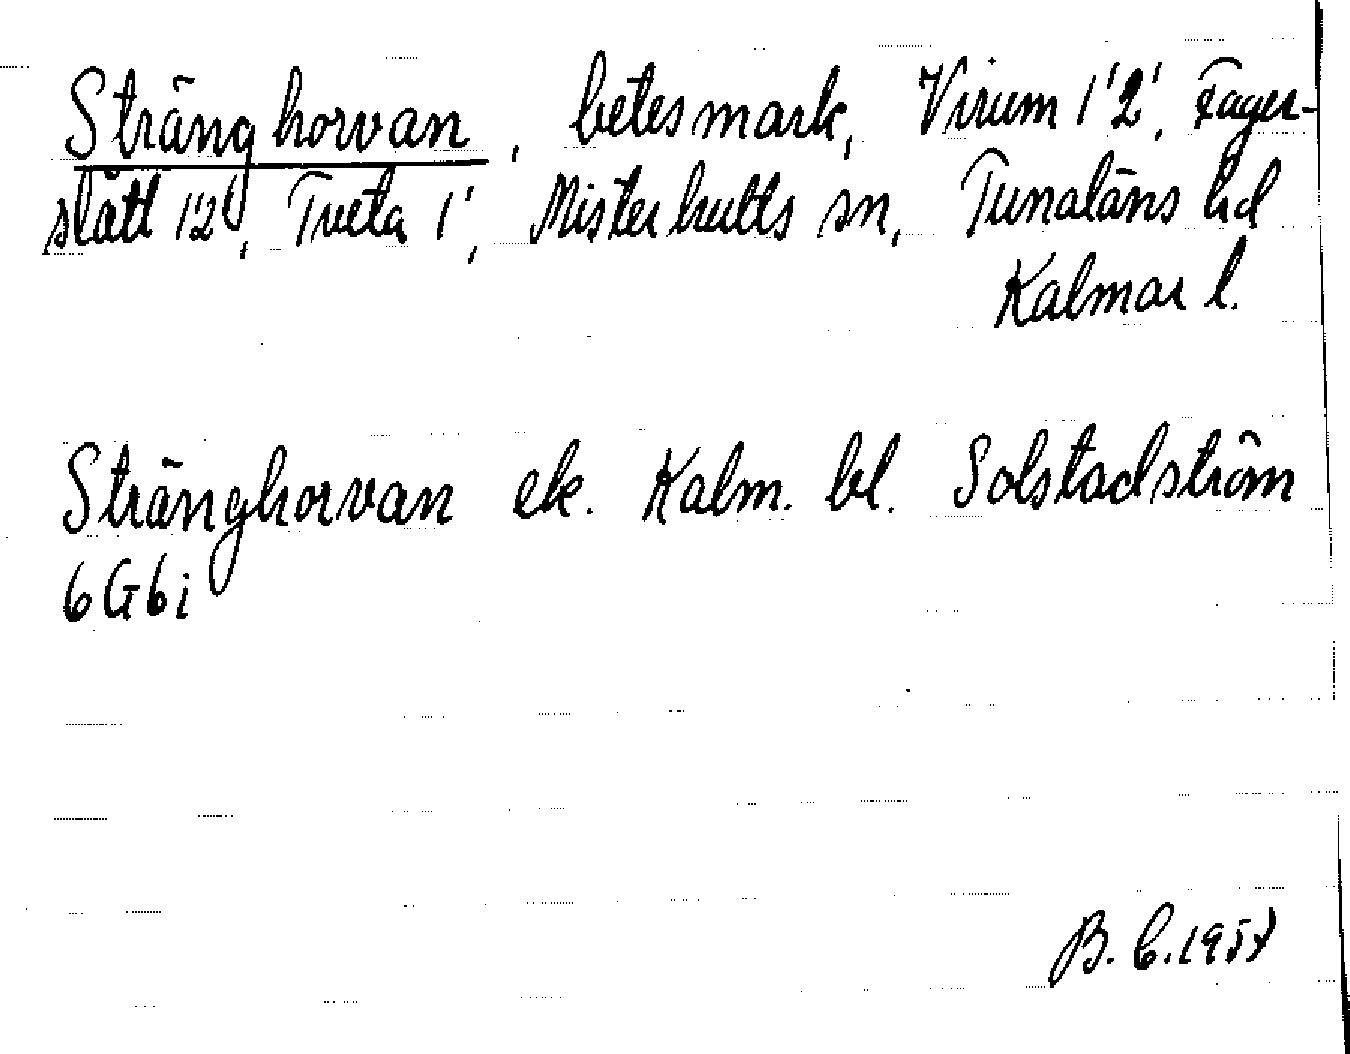 Stränghorvan, betesmark, Virum 1'2', Fager-
slätt 1'2', Tveta 1', Misterhults sn, Tunaläns hd
Kalmar l.
Stränghorvan ek. Kalm. bl. Solstadström
6G6i
B. C. 1957